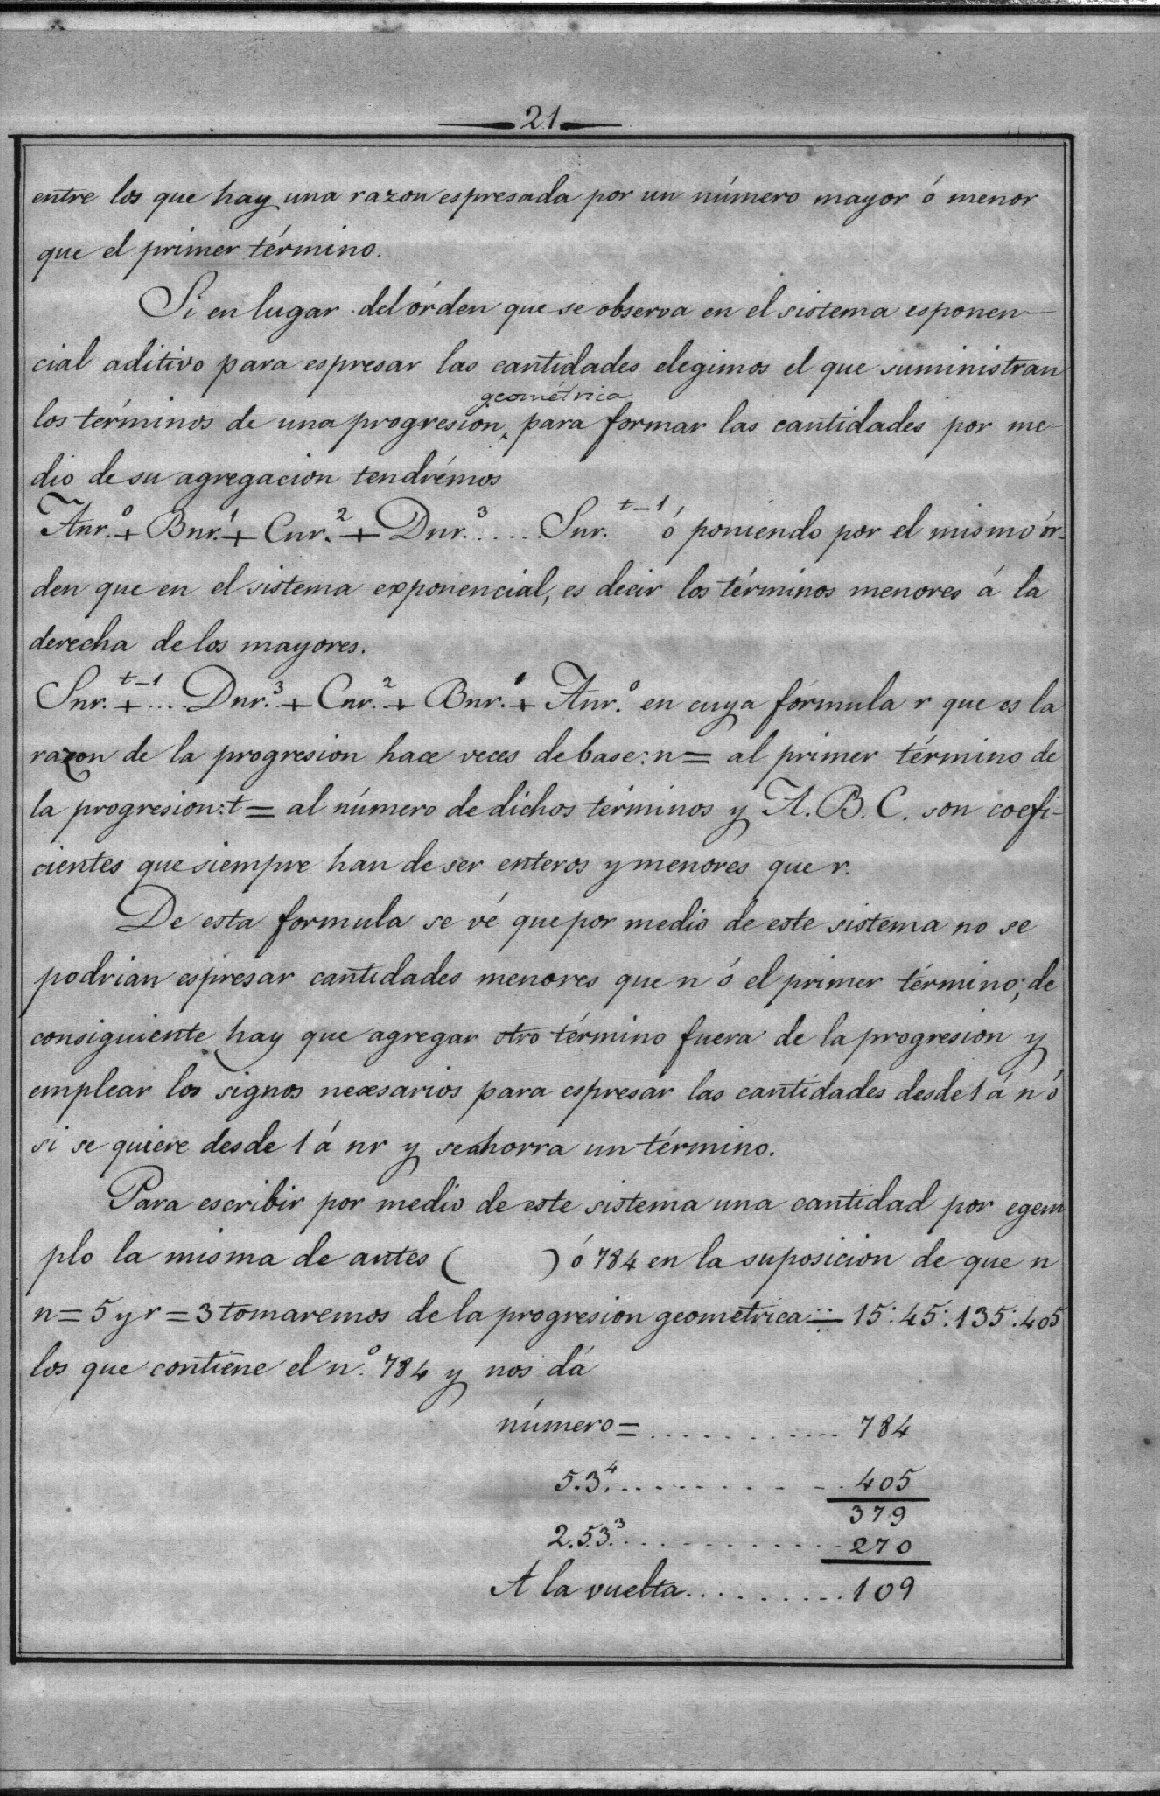 21
entre los que hay una razon espresada por un número mayor ó menor
que el primer término.
Si en lugar del órden que se observa en el sistema esponen-
cial aditivo para espresar las cantidades elegimos el que suministran
geométrica
los términos de una progresion para formar las cantidades por me-
dio de su agregacion tendrémos
Anr.⁰ + Bnr.¹ + Cnr.² + Dnr.³ .... Snr.ᵗ⁻¹ ó poniendo por el mismo ór-
den que en el sistema exponencial, es decir los términos menores á la
derecha de los mayores.
Snr.ᵗ⁻¹ + ... Dnr.³ + Cnr.² + Bnr.¹ + Anr.⁰ en cuya fórmula r que es la
razon de la progresion hace veces de base: n = al primer término de
la progresion: t = al número de dichos términos y A. B. C. son coefi-
cientes que siempre han de ser enteros y menores que r.
De esta formula se vé que por medio de este sistema no se
podrian espresar cantidades menores que n ó el primer término; de
consiguiente hay que agregar otro término fuera de la progresion y
emplear los signos necesarios para espresar las cantidades desde 1 á n ó
si se quiere desde 1 á nr y se ahorra un término.
Para escribir por medio de este sistema una cantidad por egem
plo la misma de antes (      ) ó 784 en la suposicion de que n
n = 5 y r = 3 tomaremos de la progresion geometrica ÷÷ 15:45:135:405
los que contiene el n.º 784 y nos dá
número = ........... 784
5.3.⁴ ........... 405
379
2.5.3.³ ........... 270
A la vuelta ......... 109